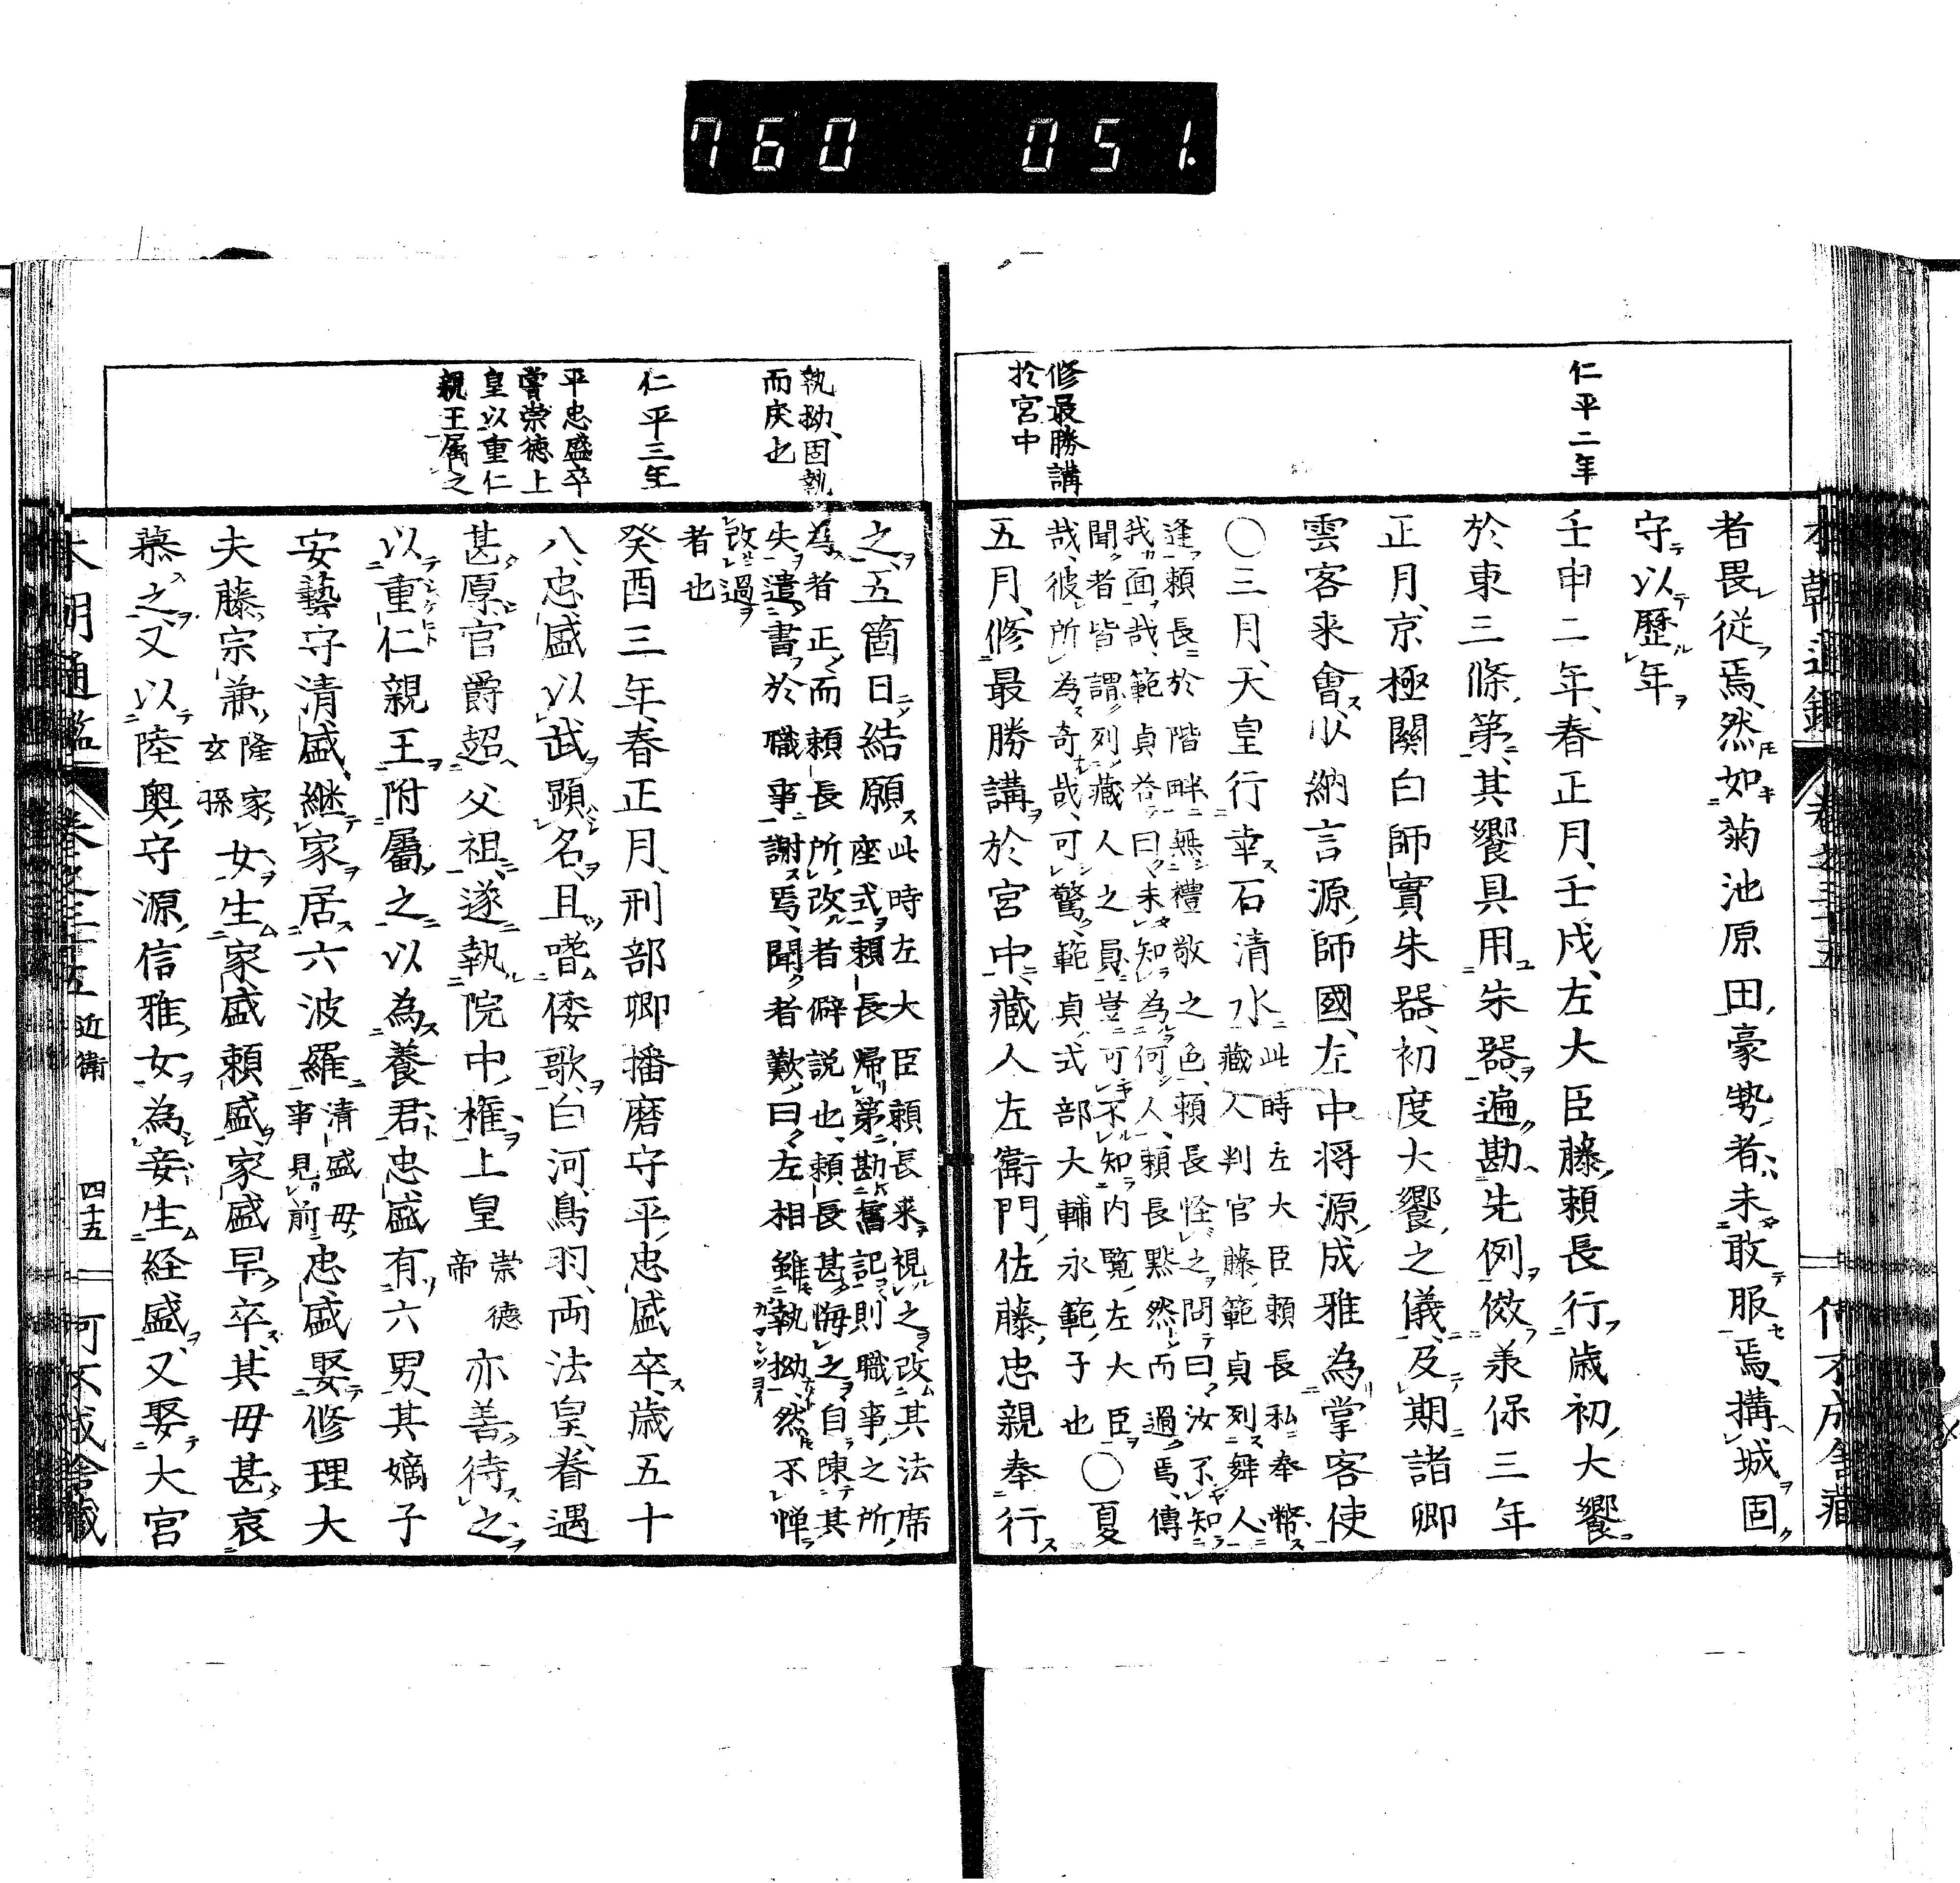 760 051.
仁平二年
修最勝講
於宮中
者畏従焉、然如菊池原田豪勢者、未敢服焉、搆城固
守以歷年
壬申二年、春正月、壬戌、左大臣藤頼長行歳初大饗
於東三條第、其饗具用朱器、遍勘先例、倣承保三年
正月、京極關白師實朱器、初度大饗之儀、及期諸卿
雲客来會、少納言源師國、左中将源成雅為掌客使
〇三月、天皇行幸石清水
此時左大臣頼長私奉幣
藏人判官藤範貞列舞人
逢頼長於階畔無禮敬之色、頼長怪之問曰汝不知
我面哉、範貞答曰未知為何人、頼長黙然而過焉、傳
聞者皆謂列藏人之員豈可不知内覧左大臣
〇夏
哉、彼所為奇哉、可驚、範貞式部大輔永範子也
五月、修最勝講於宮中、藏人左衛門佐藤忠親奉行
執拗、固執
而戾也
仁平三年
平忠盛卒
嘗崇徳上
皇以重仁
親王属之
之、五箇日結願
此時左大臣頼長来視之改其法席
座式頼長帰第勘舊記則職事之所
為者正而頼長所改者僻説也、頼長甚悔之自陳其
失遣書於職事謝焉、聞者歎曰左相雖執拗、然不憚
改過
者也
癸酉三年、春正月、刑部卿播磨守平忠盛卒、歳五十
八、忠盛以武顕名、且嗜倭歌、白河鳥羽、両法皇、眷遇
甚厚官爵超父祖、遂執院中權、上皇
崇徳
帝
亦善待之
以重仁親王附屬之以為養君、忠盛有六男、其嫡子
安藝守清盛、継家居六波羅
清盛母
事見前
忠盛娶修理大
夫藤宗兼
隆家
玄孫
女生家盛頼盛、家盛早卒、其母甚哀
慕之、又以陸奥守源信雅女為妾生経盛、又娶大宮
近衛
四十五